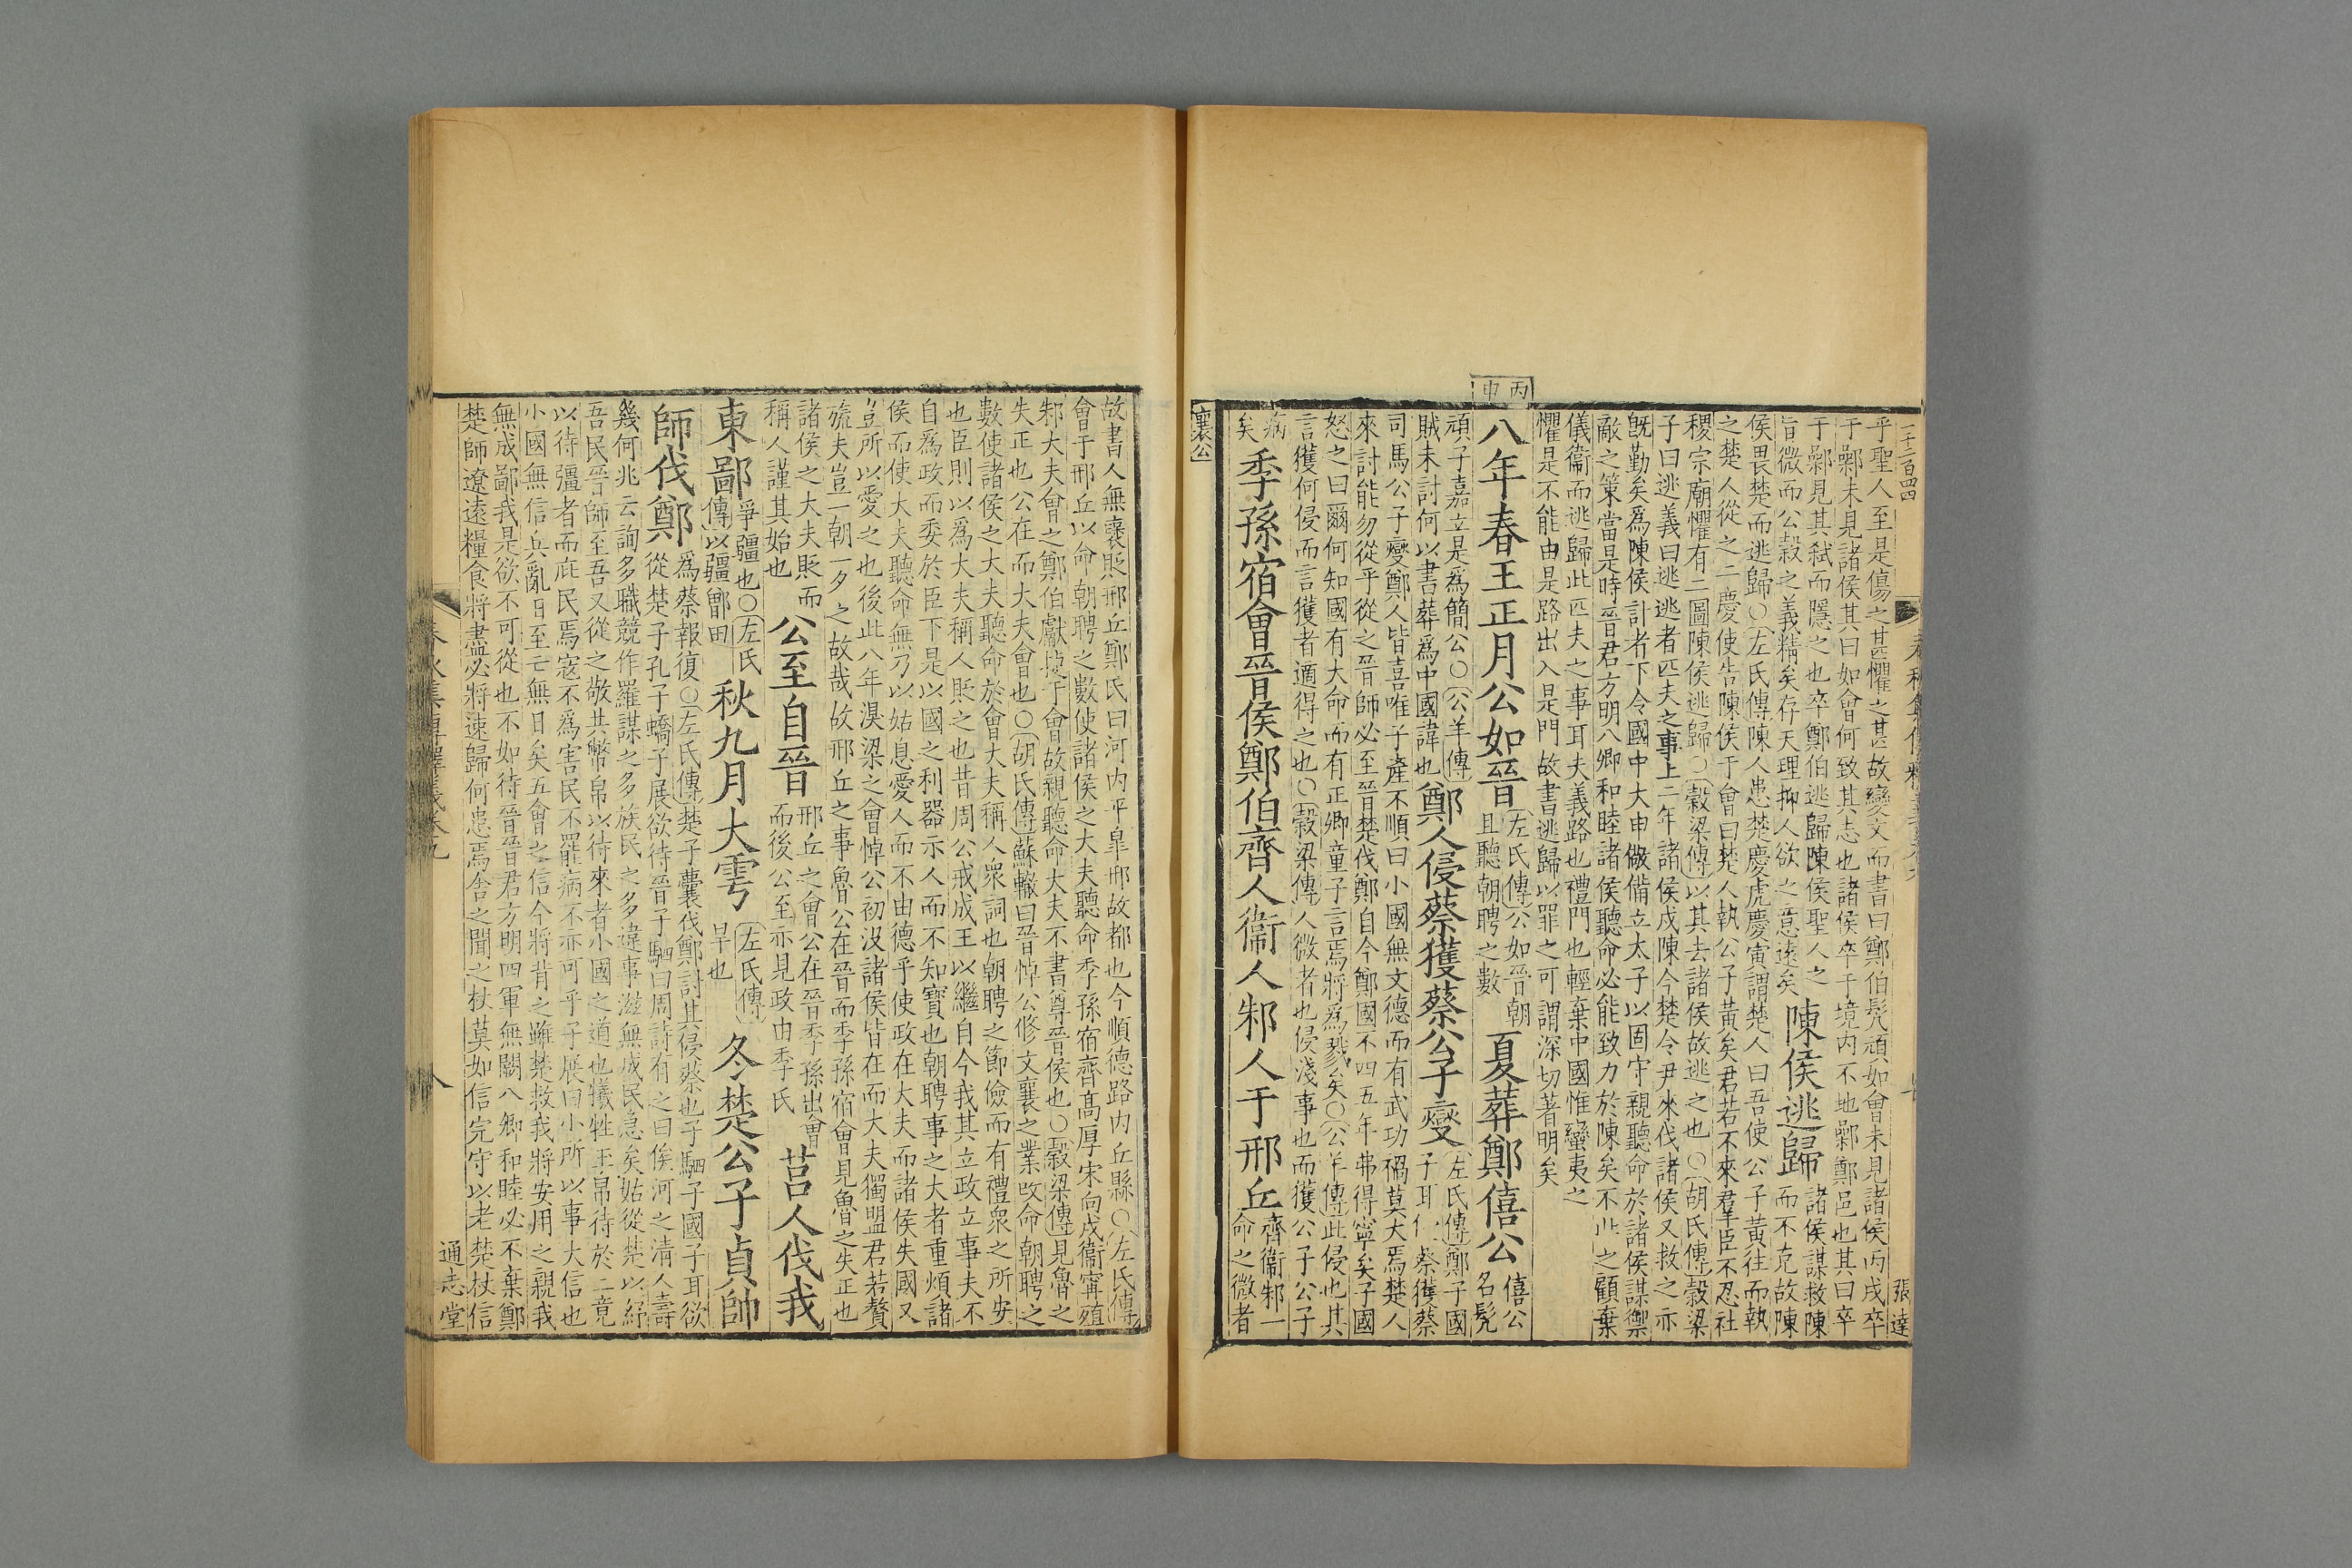 乎聖人至是傷之甚懼之甚故變文而書曰鄭伯髠頑如會未見諸侯丙戌卒
于鄵未見諸侯其曰如會何致其志也諸侯卒于境内不地鄵鄭邑也其曰卒
于鄵見其弑而隱之也卒鄭伯逃歸陳侯聖人之
旨微而公穀之義精矣存天理抑人欲之意遠矣
陳侯逃歸
諸侯謀救陳
而不克故陳
侯畏楚而逃歸○左氏傳陳人患楚慶虎慶寅謂楚人曰吾使公子黃往而執
之楚人從之二慶使告陳侯于會曰楚人執公子黃矣君若不來羣臣不忍社
稷宗廟懼有二圖陳侯逃歸○穀梁傳以其去諸侯故逃之也○胡氏傳穀梁
子曰逃義曰逃逃者匹夫之事上二年諸侯戍陳今楚令尹來伐諸侯又救之亦
既勤矣爲陳侯計者下令國中大申儆備立太子以固守親聽命於諸侯謀禦
敵之策當是時晉君方明八卿和睦諸侯聽命必能致力於陳矣不此之顧棄
儀衞而逃歸此匹夫之事耳夫義路也禮門也輕棄中國惟蠻夷之
懼是不能由是路出入是門故書逃歸以罪之可謂深切著明矣
丙申
八年春王正月公如晉
左氏傳公如晉朝
且聽朝聘之數
夏葬鄭僖公
僖公
名髠
頑子嘉立是爲簡公○公羊傳
賊未討何以書葬爲中國諱也
鄭人侵蔡獲蔡公子燮
左氏傳鄭子國
子耳侵蔡獲蔡
司馬公子燮鄭人皆喜唯子產不順曰小國無文德而有武功禍莫大焉楚人
來討能勿從乎從之晉師必至晉楚伐鄭自今鄭國不四五年弗得寧矣子國
怒之曰爾何知國有大命而有正卿童子言焉將爲戮矣○公羊傳此侵也其
言獲何侵而言獲者適得之也○穀梁傳人微者也侵淺事也而獲公子公子
病
矣
季孫宿會晉侯鄭伯齊人衞人邾人于邢丘
齊衞邾一
命之微者
襄公
故書人無褒貶邢丘鄭氏曰河内平臯邢故都也今順德路内丘縣○左氏傳
會于邢丘以命朝聘之數使諸侯之大夫聽命季孫宿齊髙厚宋向戌衞甯殖
邾大夫會之鄭伯獻捷于會故親聽命大夫不書尊晉侯也○穀梁傳見魯之
失正也公在而大夫會也○胡氏傳蘇轍曰晉悼公修文襄之業改命朝聘之
數使諸侯之大夫聽命於會大夫稱人衆詞也朝聘之節儉而有禮衆之所安
也臣則以爲大夫稱人貶之也昔周公戒成王以繼自今我其立政立事夫不
自爲政而委於臣下是以國之利器示人而不知寶也朝聘事之大者重煩諸
侯而使大夫聽命無乃以姑息愛人而不由德乎使政在大夫而諸侯失國又
豈所以愛之也後此八年溴梁之會悼公初没諸侯皆在而大夫獨盟君若贅
旒夫豈一朝一夕之故哉故邢丘之事魯公在晉而季孫宿會見魯之失正也
諸侯之大夫貶而
稱人謹其始也
公至自晉
邢丘之會公在晉季孫出會
而後公至亦見政由季氏
莒人伐我
東鄙
爭疆也○左氏
傳以疆鄫田
秋九月大雩
左氏傳
旱也
冬楚公子貞帥
師伐鄭
爲蔡報復○左氏傳楚子囊伐鄭討其侵蔡也子駟子國子耳欲
從楚子孔子蟜子展欲待晉子駟曰周詩有之曰俟河之清人壽
幾何兆云詢多職競作羅謀之多族民之多違事滋無成民急矣姑從楚以紓
吾民晉師至吾又從之敬共幣帛以待來者小國之道也犧牲玉帛待於二竟
以待彊者而庇民焉寇不爲害民不罷病不亦可乎子展曰小所以事大信也
小國無信兵亂日至亡無日矣五會之信今將背之雖楚救我將安用之親我
無成鄙我是欲不可從也不如待晉晉君方明四軍無闕八卿和睦必不棄鄭
楚師遼遠糧食將盡必將速歸何患焉舍之聞之杖莫如信完守以老楚杖信
春秋集傳釋義卷九
八
通志堂